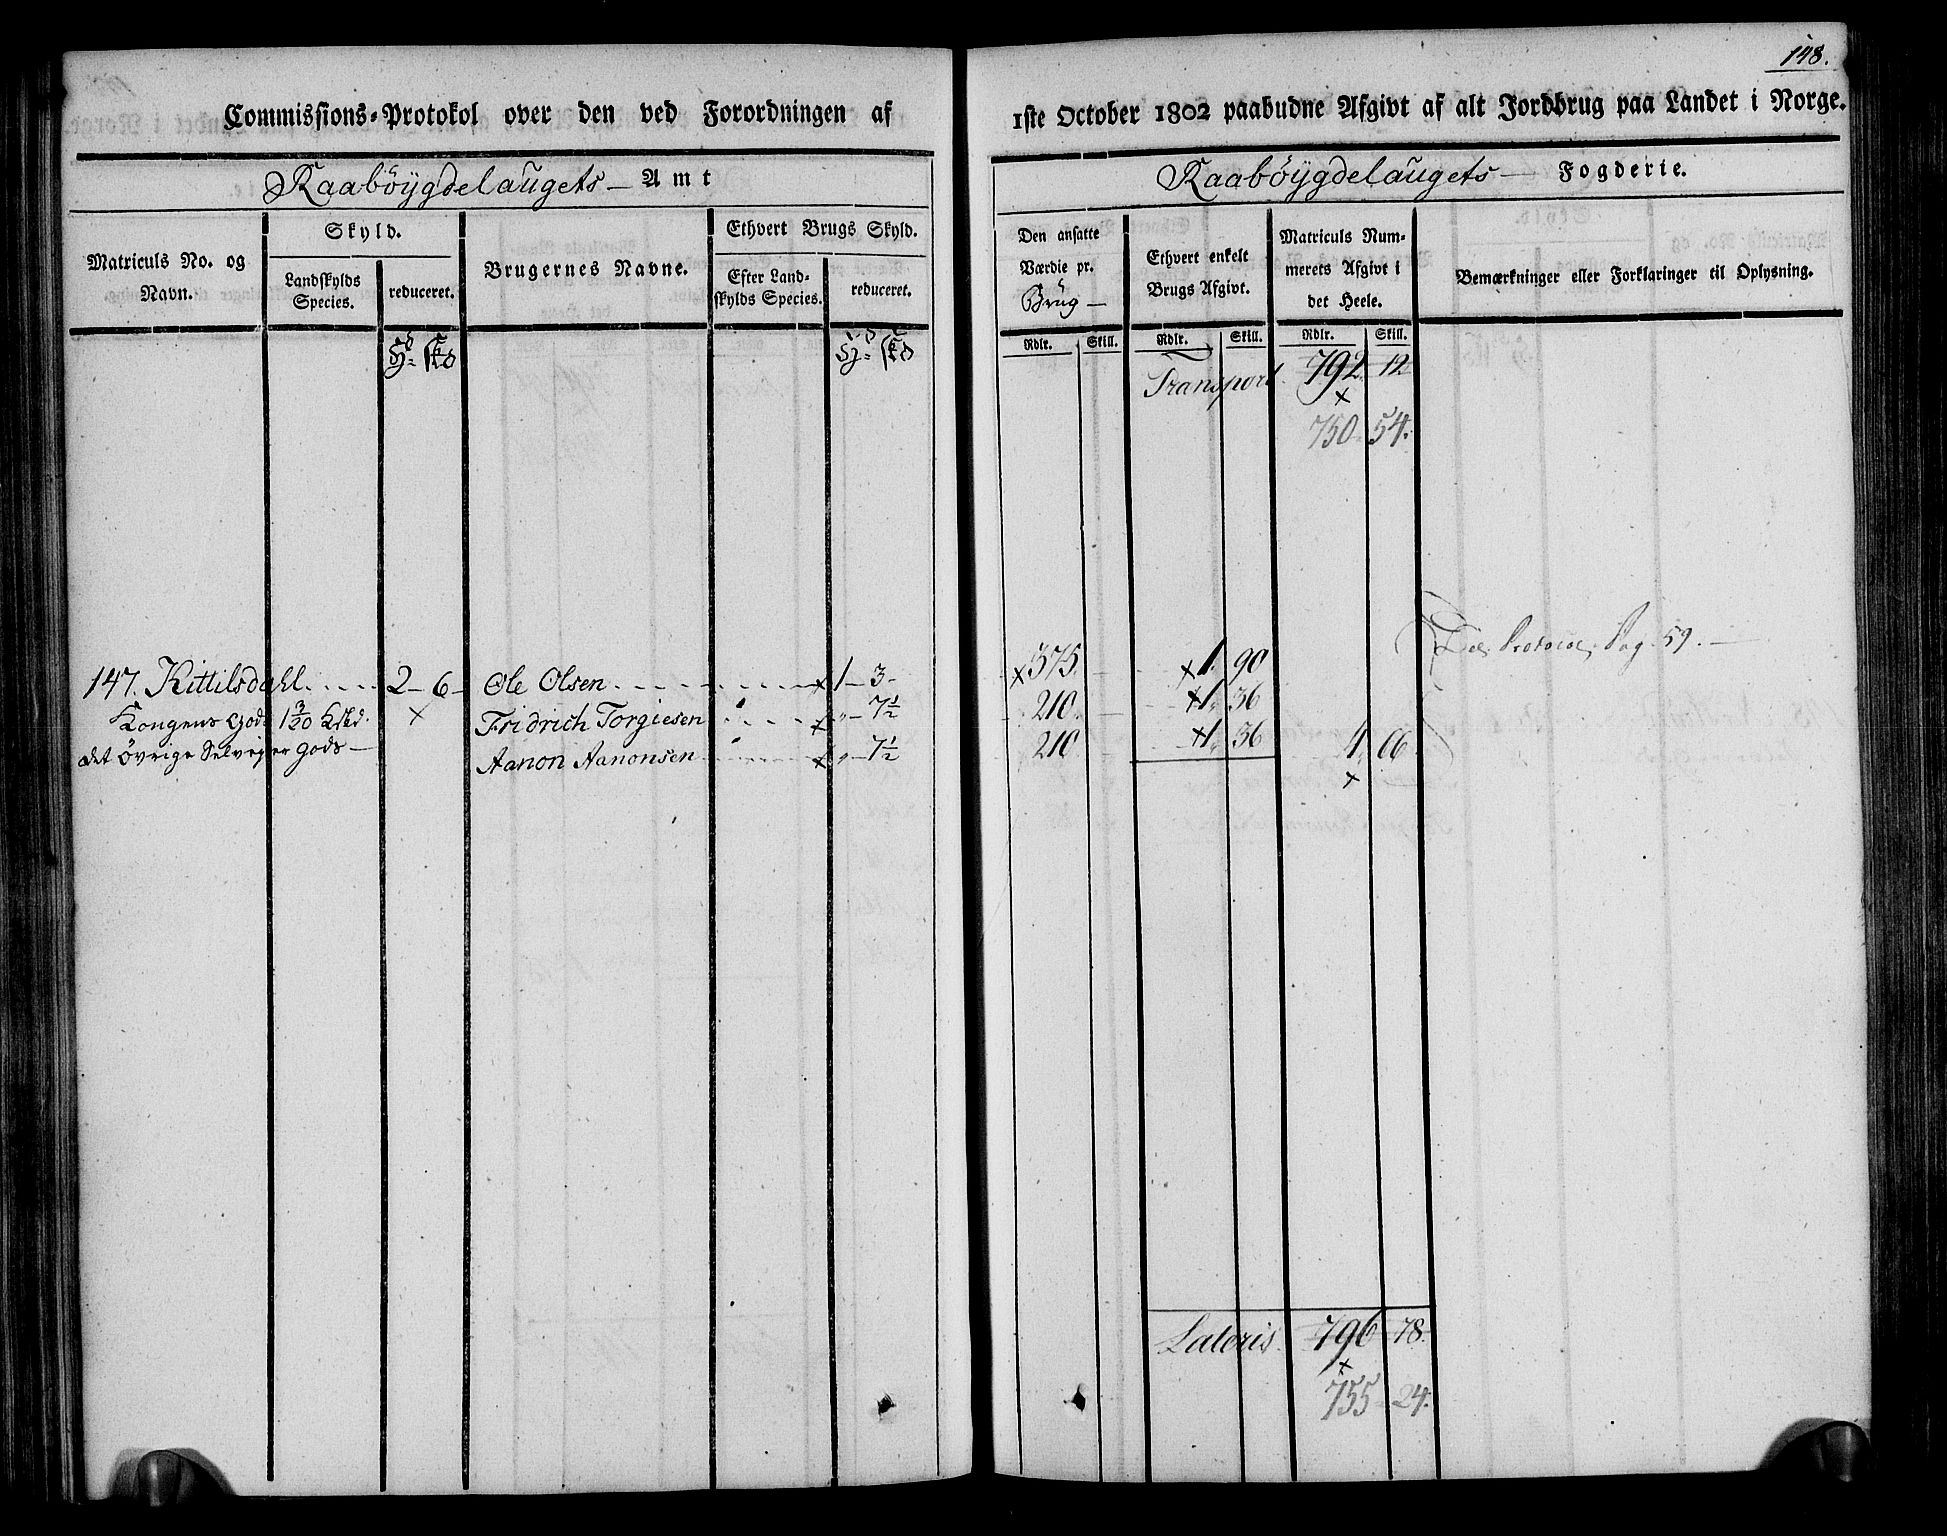 148.
Commissions-Protokol over den ved Forordningen af 1ste October 1802 paabudne Afgivt af alt Jordbrug paa Landet i Norge.
Raabøygdelaugets Amt
Raabøygdelaugets Fogderie.
Matriculs No. og Navn.
Skyld.
Landskylds Species.
reduceret.
Brugernes Navne.
Ethvert Brugs Skyld.
Efter Landskylds Species.
reduceret.
Den ansatte Værdie pr. Brug
Ethvert enkelt Brugs Afgivt.
Matriculs Nummerets Afgivt i det Heele.
Bemærkninger eller Forklaringer til Oplysning.
Rdlr. Skill. Rdlr. Skill. Rdlr. Skill.
Transport. 792. 12
x
750. 54.
Pag. 59.
147. Kittilsdahl 2 - 6 - Ole Olsen x 1 - 3 - x 375. x 1. 90
Kongens Gods 1 3/20 x Fridrich Torgiesen x „ - 7 1/2 210. x 1. 36
det övrige Selvejer Gods — Aanon Aanonsen x „ - 7 1/2 210. x 1. 36 4. 66.
x
Lateris. 796 78.
x
755 24.